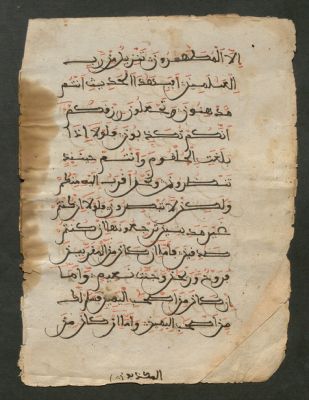 إلا المطهرون تنزيل من رب
العلمين أفبهذا الحديث أنتم
مدهنون وتجعلون رزقكم
أنكم تكذبون فلولا إذا
بلغت الحلقوم وأنتم حينئذ
تنظرون ونحن أقرب إليه منكم
ولكن لا تبصرون فلولا إن كنتم
غير مدينين ترجعونها إن كنتم
صدقين فأما إن كان من المقربين
فروح وريحن وجنت نعيم وأما
إن كان من أصحب اليمين فسلم لك
من أصحب اليمين وأما إن كان من
المكذبين